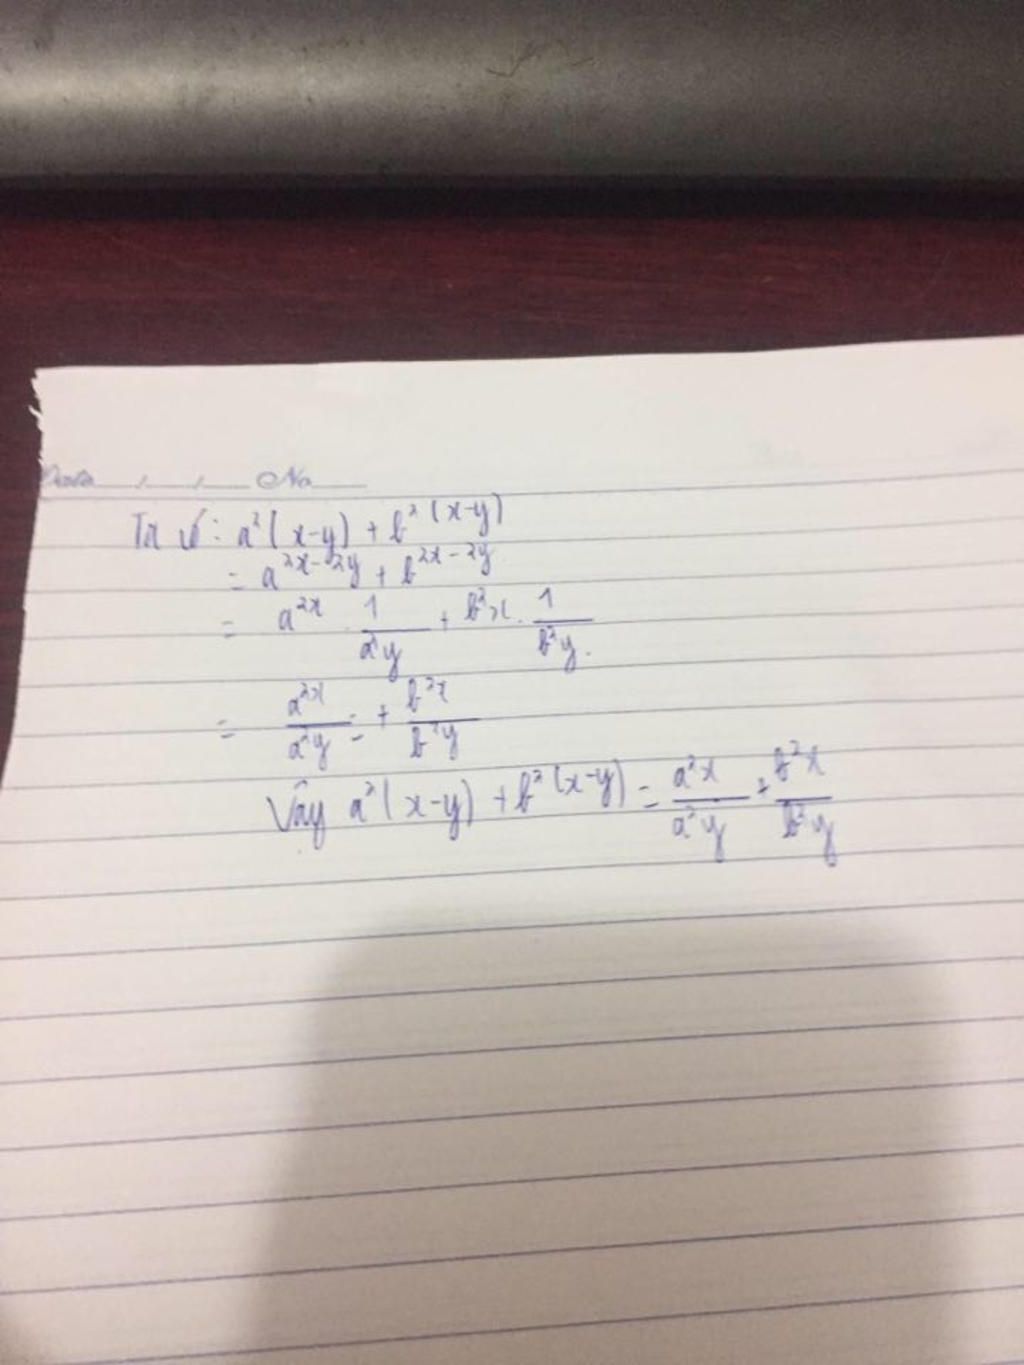 Date / / No
Ta có: a²(x-y) + b²(x-y)
= a²ˣ⁻²ʸ + b²ˣ⁻²ʸ
= a²ˣ . 1/a²y + b²x . 1/b²y.
= a²ˣ/a²y = + b²x/b²y
Vậy a²(x-y) + b²(x-y) = a²x/a²y + b²x/b²y